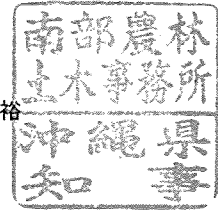 南部農林
土木事務所
裕
沖縄県
知事